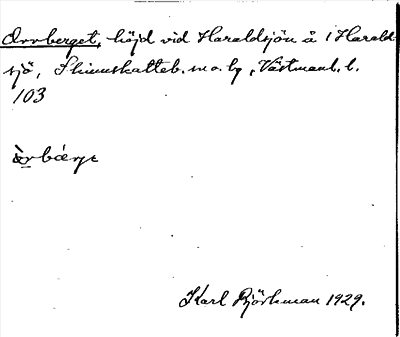 Orrberget, höjd vid Haraldsjön å 1 Harald-
sjö, Skinnskatteb. sn o. bg, Västmanl. l.
103
òrbǽrjɛ
Karl Björkman 1929.